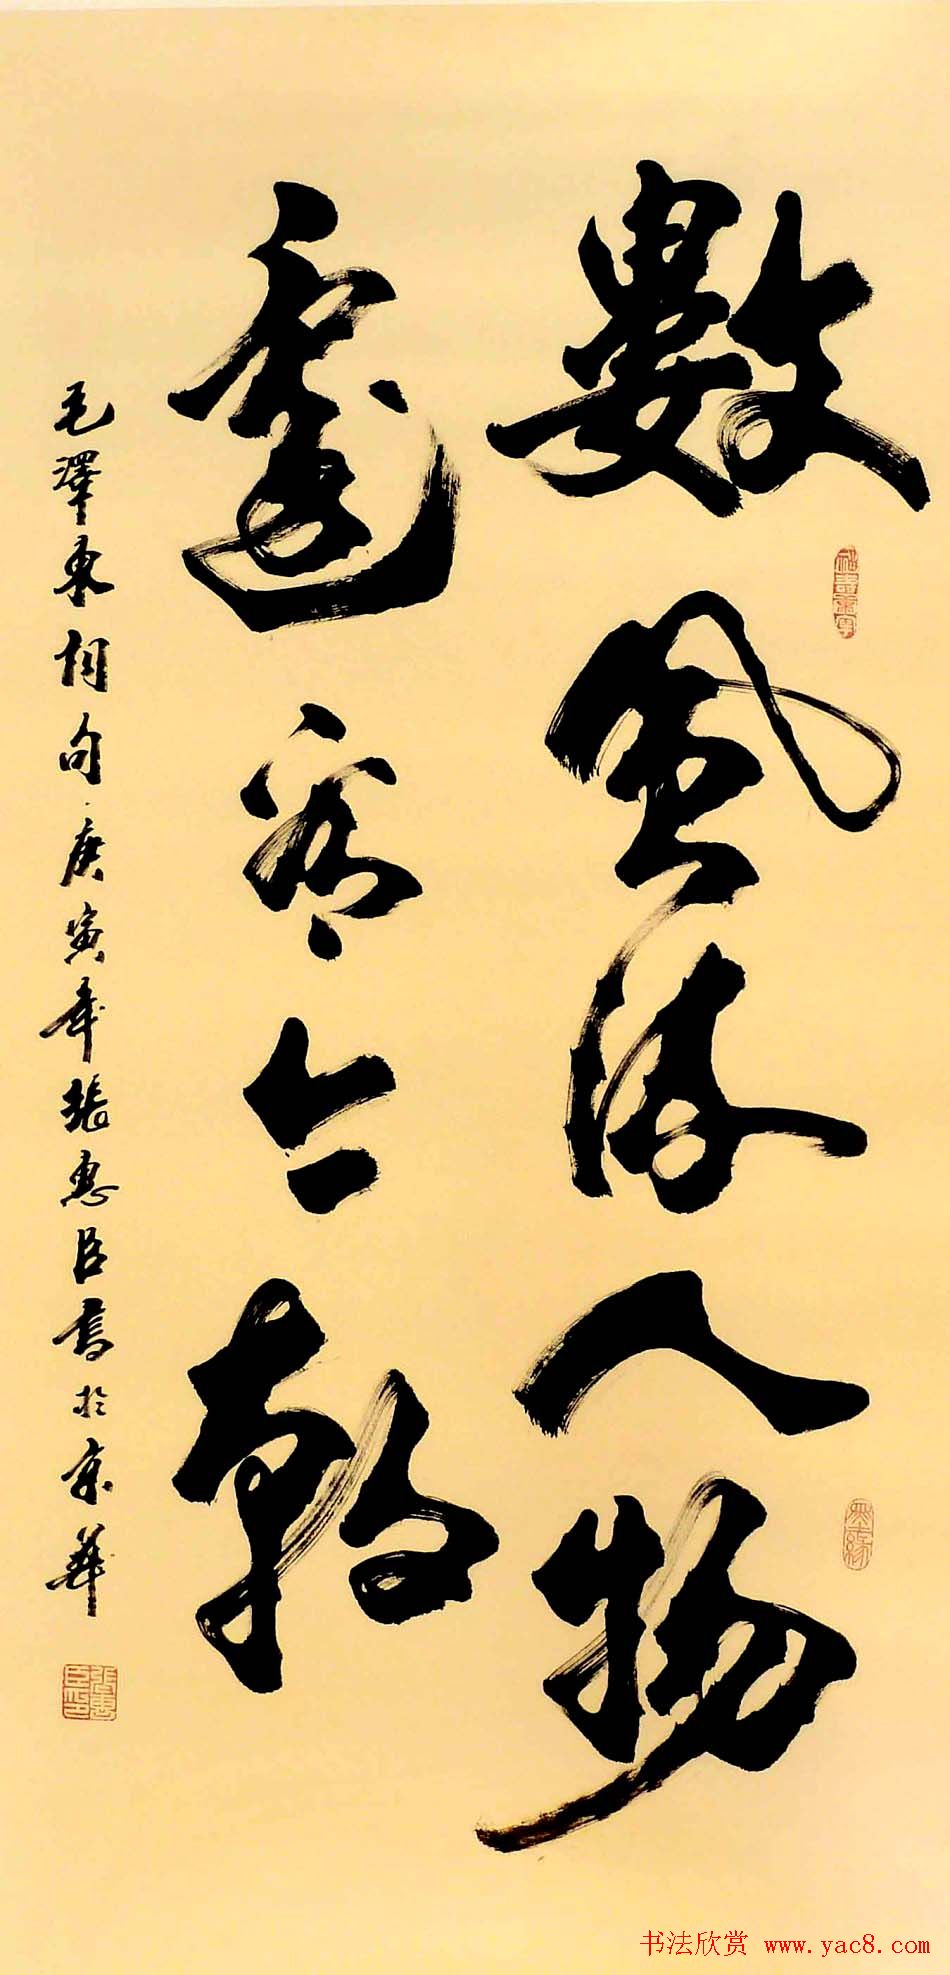 數風流人物
還看今朝
毛澤東詞句庚寅年張惠臣書於京華
張惠臣印
书法欣赏 www.yac8.com